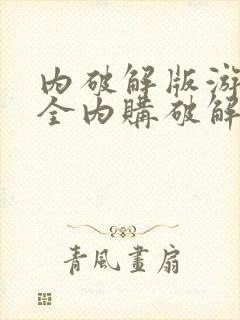 内破解版游
全内購破解
青風畫扇